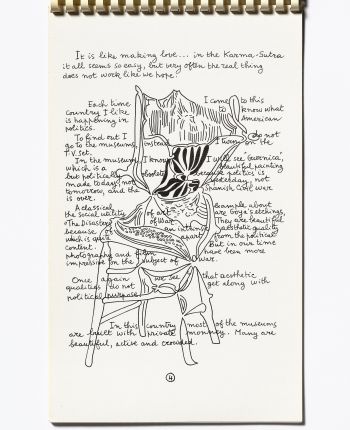 It is like making love... in the Karma-Sutra
it all seems so easy, but very often the real thing
does not work like we hope.
Each time I come to this
country I like to know what
is happening in American
politics.
To find out I do not
go to the museums, instead I turn on the
T.V. set.
In the museum, I know I will see 'Guernica',
which is a beautiful painting
but politically obsolete because politics is
made today, not yesterday, not
tomorrow, and the Spanish Civil War
is over.
A classical example about
the social utility of art are Goya's etchings,
"The Disasters of War. They are beautiful
because of an intrinsic aesthetic quality
which is quite apart from the political
content. But in our time
photography and film have been more
impressive on the subject of war.
Once again we see that aesthetic
qualities do not get along with
political purpose.
In this country most of the museums
are built with private money. Many are
beautiful, active and crowded.
4